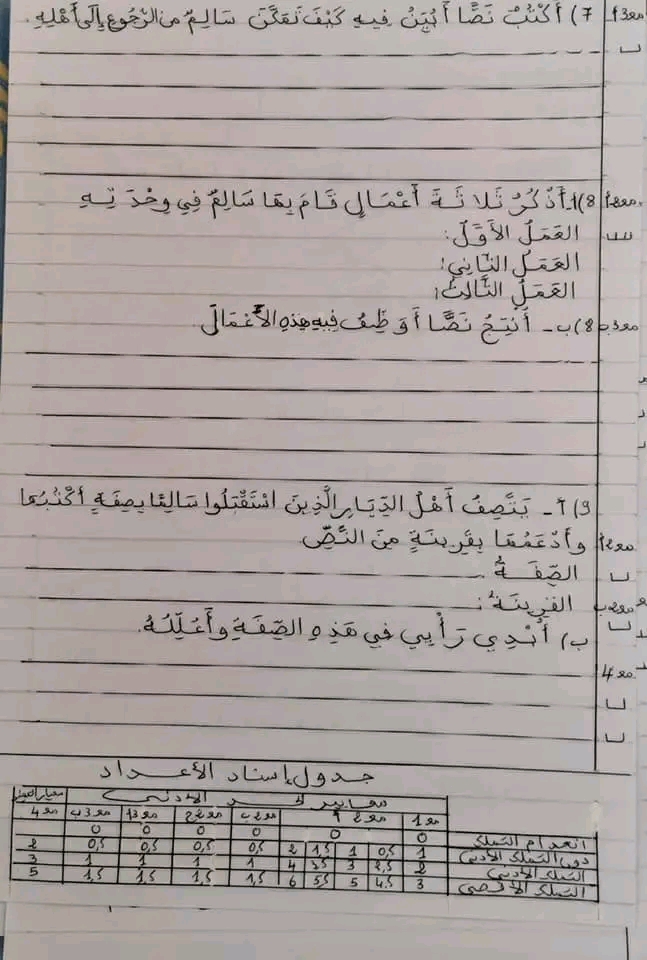 مع3أ 7) أَكْتُبُ نَصًّا أُبَيِّنُ فِيهِ كَيْفَ تَمَكَّنَ سَالِمٌ مِنَ الرُّجُوعِ إِلَى أَهْلِهِ.
مع2أ 8)أ- أَذْكُرُ ثَلَاثَةَ أَعْمَالٍ قَامَ بِهَا سَالِمٌ فِي وِحْدَتِهِ
العَمَلُ الأَوَّلُ:
العَمَلُ الثَّانِي:
العَمَلُ الثَّالِثُ:
مع3ب 8)ب- أُنْتِجُ نَصًّا أُوَظِّفُ فِيهِ هَذِهِ الأَعْمَالَ.
9)أ- يَتَّصِفُ أَهْلُ الدِّيَارِ الَّذِينَ اسْتَقْبَلُوا سَالِمًا بِصِفَةٍ أَكْتُبُهَا
مع2أ وَأَدْعَمُهَا بِقَرِينَةٍ مِنَ النَّصِّ
الصِّفَةُ
مع2ب القَرِينَةُ:
ب) أُبْدِي رَأْيِي فِي هَذِهِ الصِّفَةِ وَأُعَلِّلُهُ.
مع4
جدول إسناد الأعداد
معايير الحد الأدنى
مع1 مع2أ مع2ب مع2ج مع3أ مع3ب مع4
انعدام التملك 0 0 0 0 0 0
دون التملك الأدنى 1 0,5 1 1,5 2 0,5 0,5 0,5 0,5 2
التملك الأدنى 2 2,5 3 3,5 4 1 1 1 1 3
التملك الأقصى 3 4,5 5 5,5 6 1,5 1,5 1,5 1,5 5